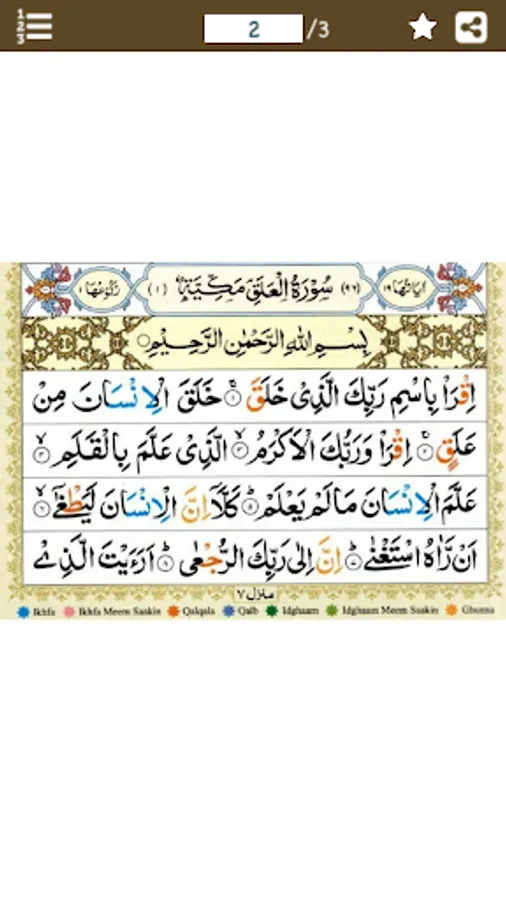 2 /3
اٰیَاتُهَا ١٩ (٩٦) سُوْرَةُ الْعَلَقِ مَكِّیَّةٌ (١) رُكُوْعُهَا ١
بِسْمِ اللّٰهِ الرَّحْمٰنِ الرَّحِیْمِ
اِقْرَاْ بِاسْمِ رَبِّكَ الَّذِیْ خَلَقَ ١ خَلَقَ الْاِنْسَانَ مِنْ
عَلَقٍ ٢ اِقْرَاْ وَرَبُّكَ الْاَكْرَمُ ٣ الَّذِیْ عَلَّمَ بِالْقَلَمِ ٤
عَلَّمَ الْاِنْسَانَ مَا لَمْ یَعْلَمْ ٥ كَلَّاۤ اِنَّ الْاِنْسَانَ لَیَطْغٰۤی ٦
اَنْ رَّاٰهُ اسْتَغْنٰی ٧ اِنَّ اِلٰی رَبِّكَ الرُّجْعٰی ٨ اَرَءَیْتَ الَّذِیْ
منزل ٧
Ikhfa Ikhfa Meem Saakin Qalqala Qalb Idghaam Idghaam Meem Saakin Ghunna